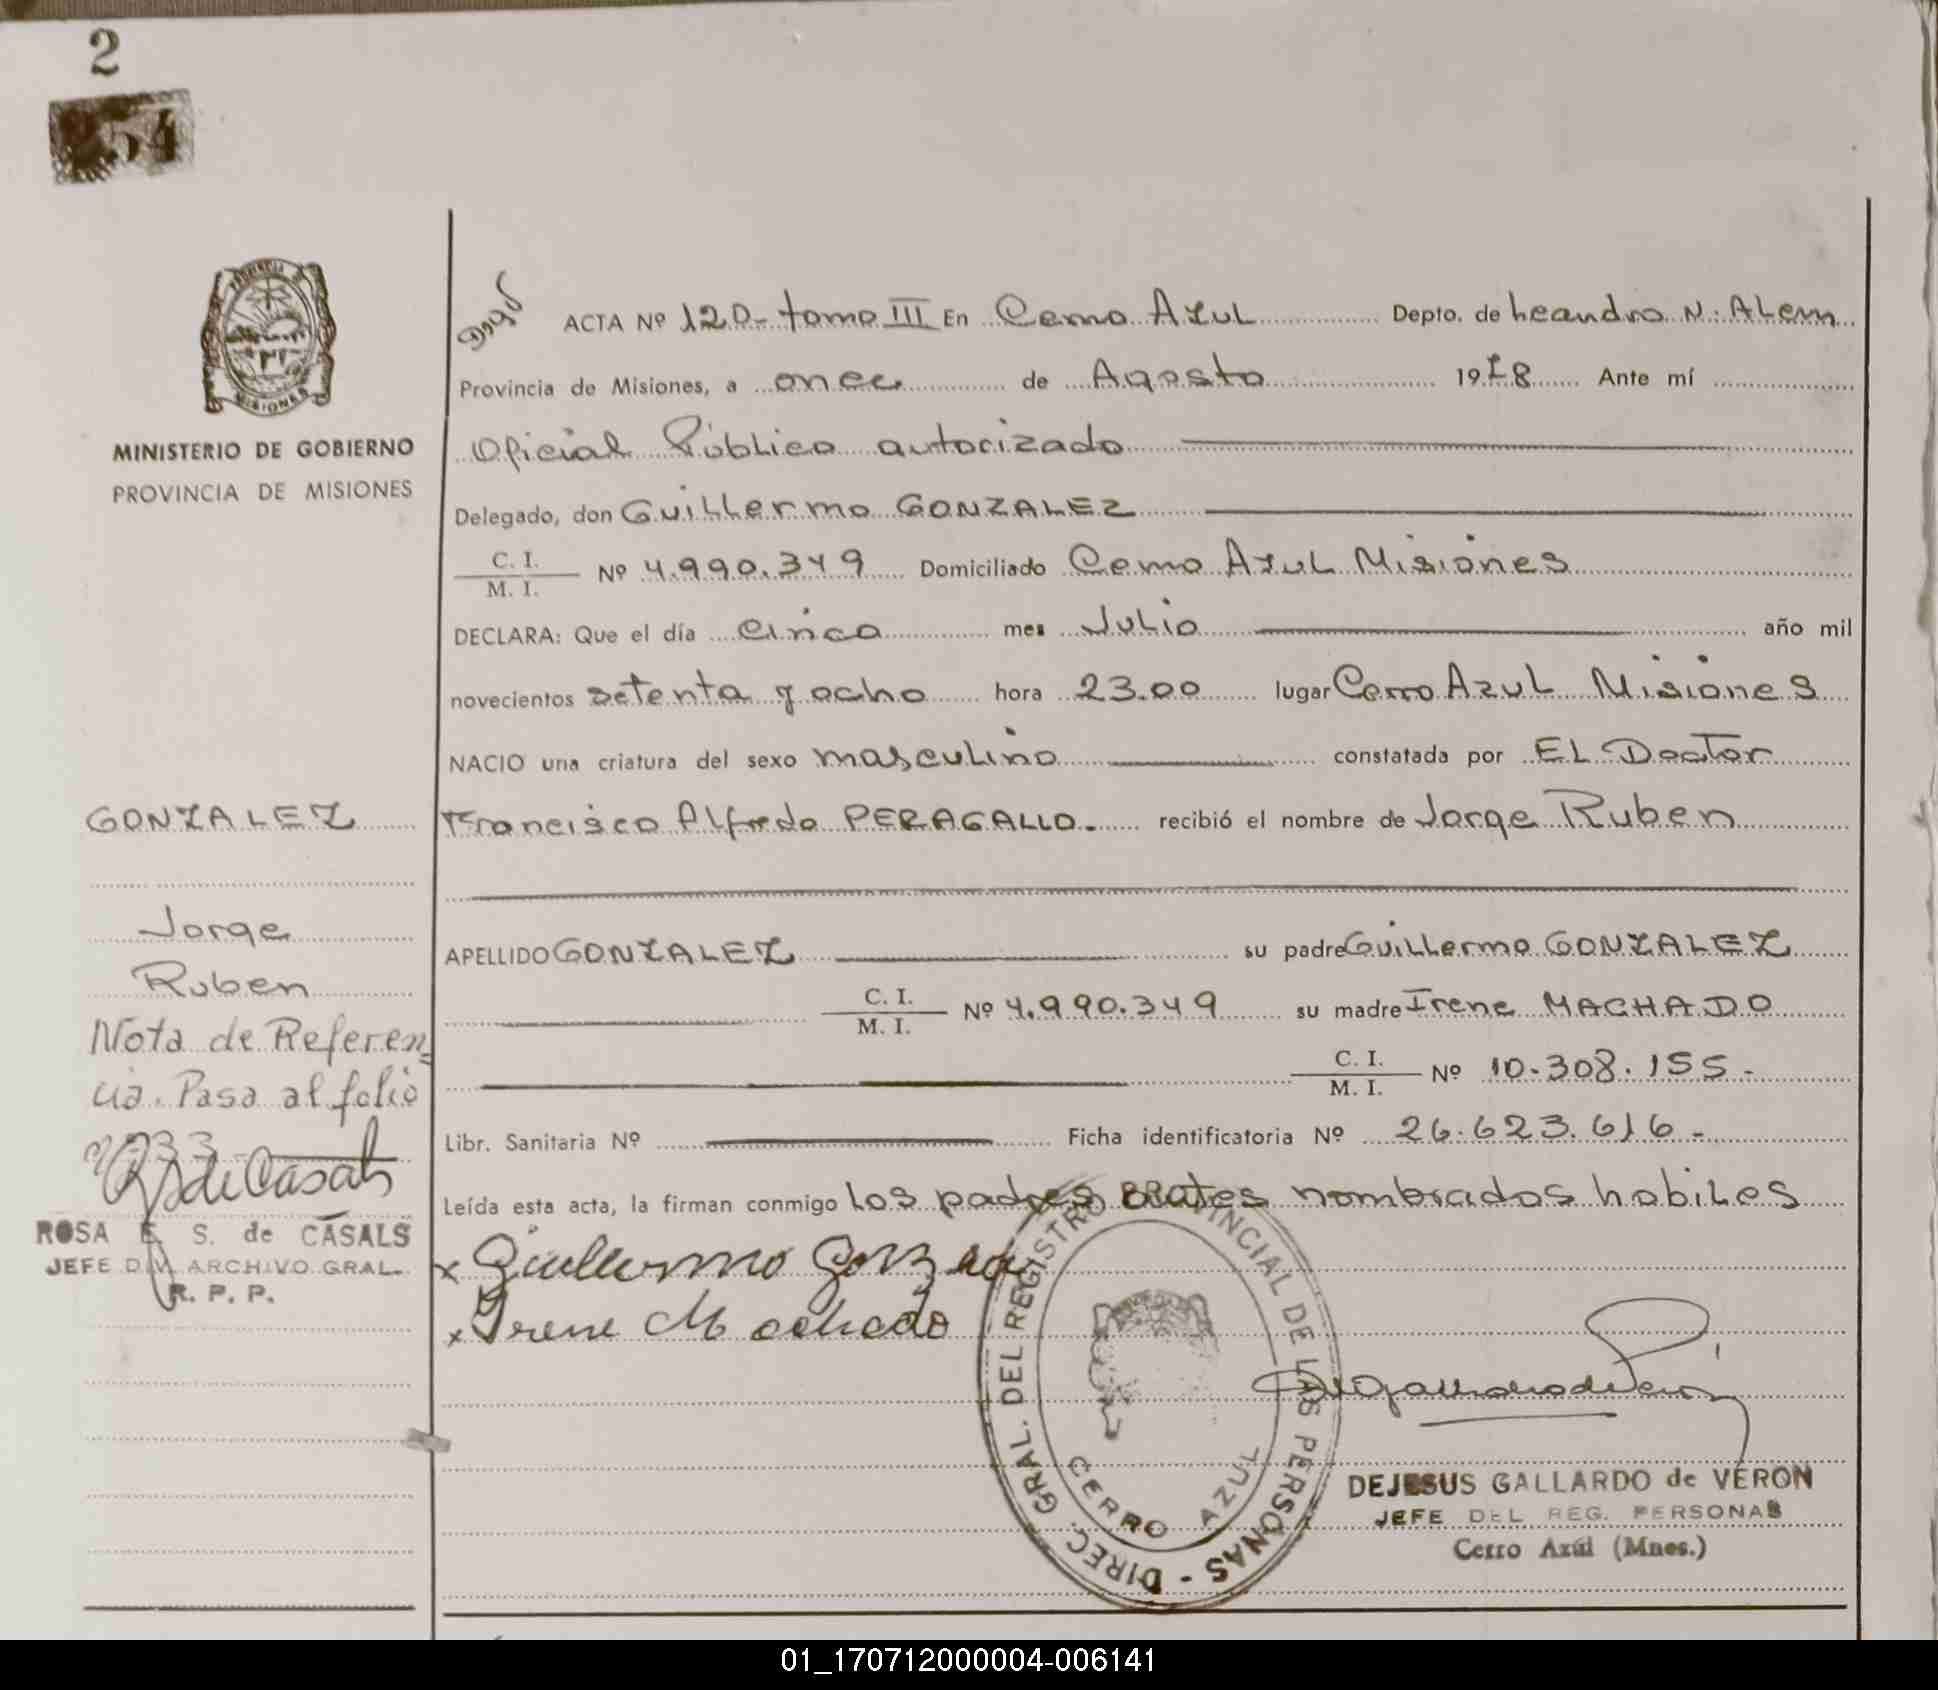 2
54
PROVINCIA DE
MISIONES
MINISTERIO DE GOBIERNO
PROVINCIA DE MISIONES
ACTA Nº 120- tomo III En Cerro Azul Depto. de Leandro N. Alem
Provincia de Misiones, a once de Agosto 1978 Ante mí
Oficial Público autorizado
Delegado, don Guillermo GONZALEZ
C. I.
M. I.
Nº 4.990.349 Domiciliado Cerro Azul Misiones
DECLARA: Que el día cinco mes Julio año mil
novecientos setenta y ocho hora 23.00 lugar Cerro Azul Misiones
NACIO una criatura del sexo masculino constatada por EL Doctor
Francisco Alfredo PERAGALLO.- recibió el nombre de Jorge Ruben
APELLIDO GONZALEZ su padre Guillermo GONZALEZ
C. I.
M. I.
Nº 4.990.349 su madre Irene MACHADO
C. I.
M. I.
Nº 10.308.155.-
Libr. Sanitaria Nº Ficha identificatoria Nº 26.623.616.-
Leída esta acta, la firman conmigo los padres nombrados habiles
x Guillermo Gonzalez
x Irene Machado
GONZALEZ
Jorge
Ruben
Nota de Referen=
cia. Pasa al folio
nº 233
RSdeCasals
ROSA E. S. de CASALS
JEFE DIV. ARCHIVO GRAL.
R. P. P.
DIREC. GRAL. DEL REGISTRO PROVINCIAL DE LAS PERSONAS -
CERRO AZUL
DEJESUS GALLARDO de VERON
JEFE DEL REG. PERSONAS
Cerro Azúl (Mnes.)
01_170712000004-006141